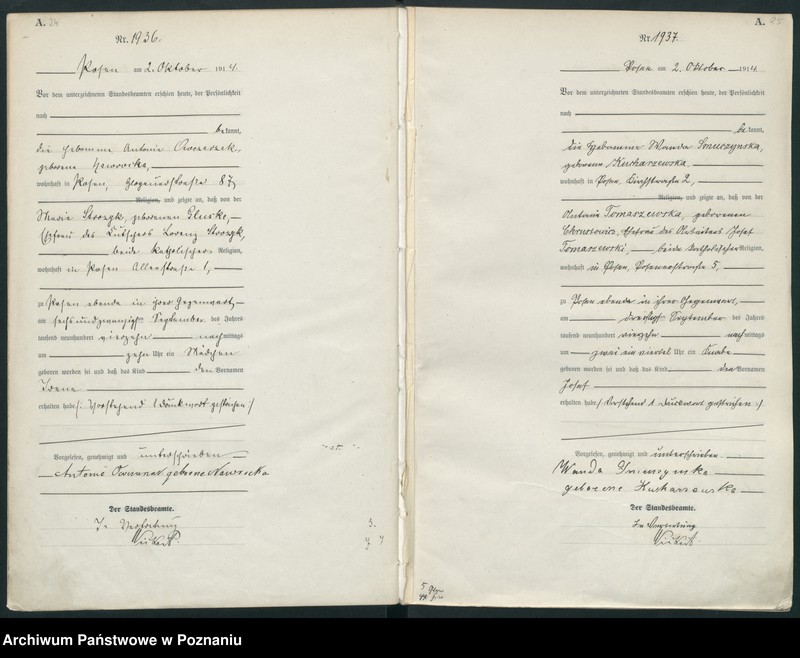 A. 24
Nr. 1936.
Posen am 2. Oktober 1914.
Vor dem unterzeichneten Standesbeamten erschien heute, der Persönlichkeit
nach
bekannt,
die Hebamme Antonie
geborene Nawrocka,
wohnhaft in Posen, Glogauerstraße 87,
Religion, und zeigte an, daß von der
Maria Skrzypk, geborenen Gluske,
Ehefrau des Kutschers Lorenz
beide katholischer Religion,
wohnhaft in Posen Allerstraße 1,
zu Posen ebenda in ihrer Gegenwart
am sechsundzwanzigsten September des Jahres
tausend neunhundert vierzehn nachmittags
um zehn Uhr ein Mädchen
geboren worden sei und daß das Kind den Vornamen
Irene
erhalten habe /: Vorstehend 1 Druckwort gestrichen :/
Vorgelesen, genehmigt und unterschrieben
Antonie geborene Nawrocka
Der Standesbeamte.
In Vertretung
A. 25
Nr. 1937.
Posen am 2. Oktober 1914.
Vor dem unterzeichneten Standesbeamten erschien heute, der Persönlichkeit
nach
bekannt,
die Hebamme Wanda Smuszynska,
geborene Kucharzewska,
wohnhaft in Posen, Bachstraße 2,
Religion, und zeigte an, daß von der
Antonie Tomaszewska, geborenen
Ehefrau des Arbeiters Josef
Tomaszewski, beide katholischer Religion,
wohnhaft in Posen, 5,
zu Posen ebenda in ihrer Gegenwart,
am dreißigsten September des Jahres
tausend neunhundert vierzehn nachmittags
um zwei ein viertel Uhr ein Knabe
geboren worden sei und daß das Kind den Vornamen
Josef
erhalten habe /: Vorstehend 1 Druckwort gestrichen :/
Vorgelesen, genehmigt und unterschrieben
Wanda
geborene Kucharzewska
Der Standesbeamte.
In Vertretung
Archiwum Państwowe w Poznaniu